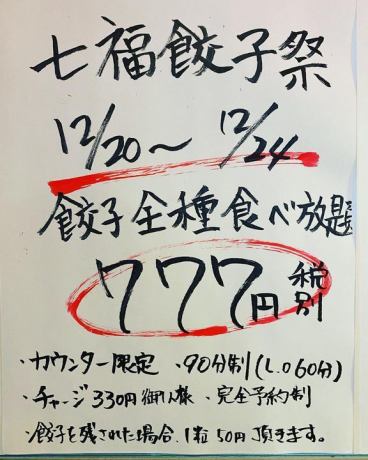 七福餃子祭
12/20〜12/24
餃子全種食べ放題
777円税別
・カウンター限定 ・90分制(L.O60分)
・チャージ330円御1人様 ・完全予約制
・餃子を残された場合、1粒50円頂きます。